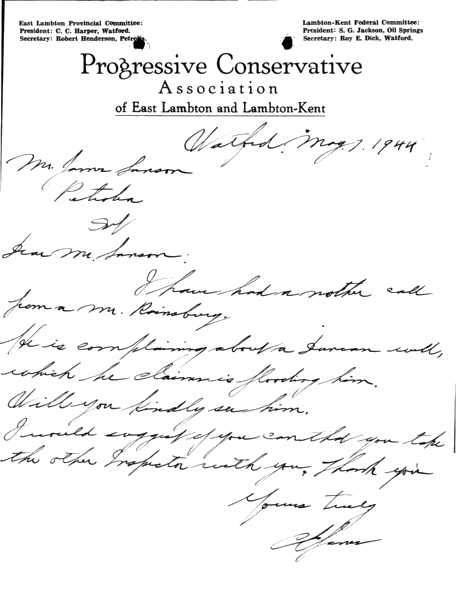 East Lambton Provincial Committee:
President: C. C. Harper, Watford.
Secretary: Robert Henderson, Petrolia.
Lambton-Kent Federal Committee:
President: S. G. Jackson, Oil Springs
Secretary: Roy E. Dick, Watford.
Progressive Conservative
Association
of East Lambton and Lambton-Kent
Watford. May 7. 1944
Mr. James Sanson
Petrolia
Dear Mr. Sanson:
I have had a nother call
from a Mr. Rainsburg.
He is complaining about a well,
which he claims is flooding him.
Will you kindly see him.
I would suggest if you can that you take
the other Inspector with you, Thank you
Yours truly